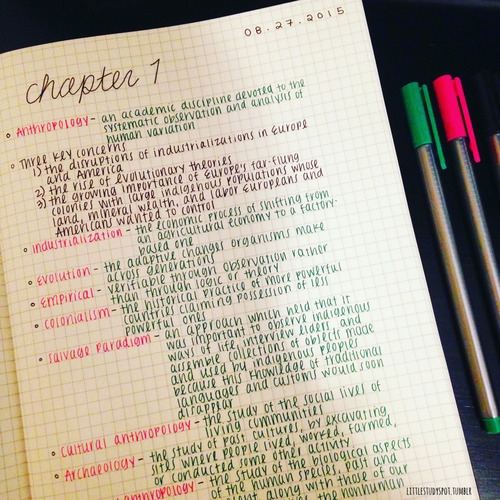 08.27.2015
chapter 1
Anthropology - an academic discipline devoted to the
systematic observation and analysis of
human variation
Three key concerns
1) the disruptions of industrializations in Europe
and America
2) the rise of evolutionary theories
3) the growing importance of Europe's far-flung
colonies with large indigenous populations whose
land, mineral wealth, and labor Europeans and
Americans wanted to control
Industrialization - the economic process of shifting from
an agricultural economy to a factory-
based one
Evolution - the adaptive changes organisms make
across generations
Empirical - verifiable through observation rather
than through logic or theory
Colonialism - the historical practice of more powerful
countries claiming possession of less
powerful ones
Salvage Paradigm - an approach which held that it
was important to observe indigenous
ways of life, interview elders, and
assemble collections of objects made
and used by indigenous peoples
because this knowledge of traditional
languages and customs would soon
disappear
Cultural anthropology - the study of the social lives of
living communities
Archaeology - the study of past cultures, by excavating
sites where people lived, worked, farmed,
or conducted some other activity
anthropology - the study of the biological aspects
of the human species, past and
along with those of our
the nonhuman
LITTLESTUDYSPOT.TUMBLR